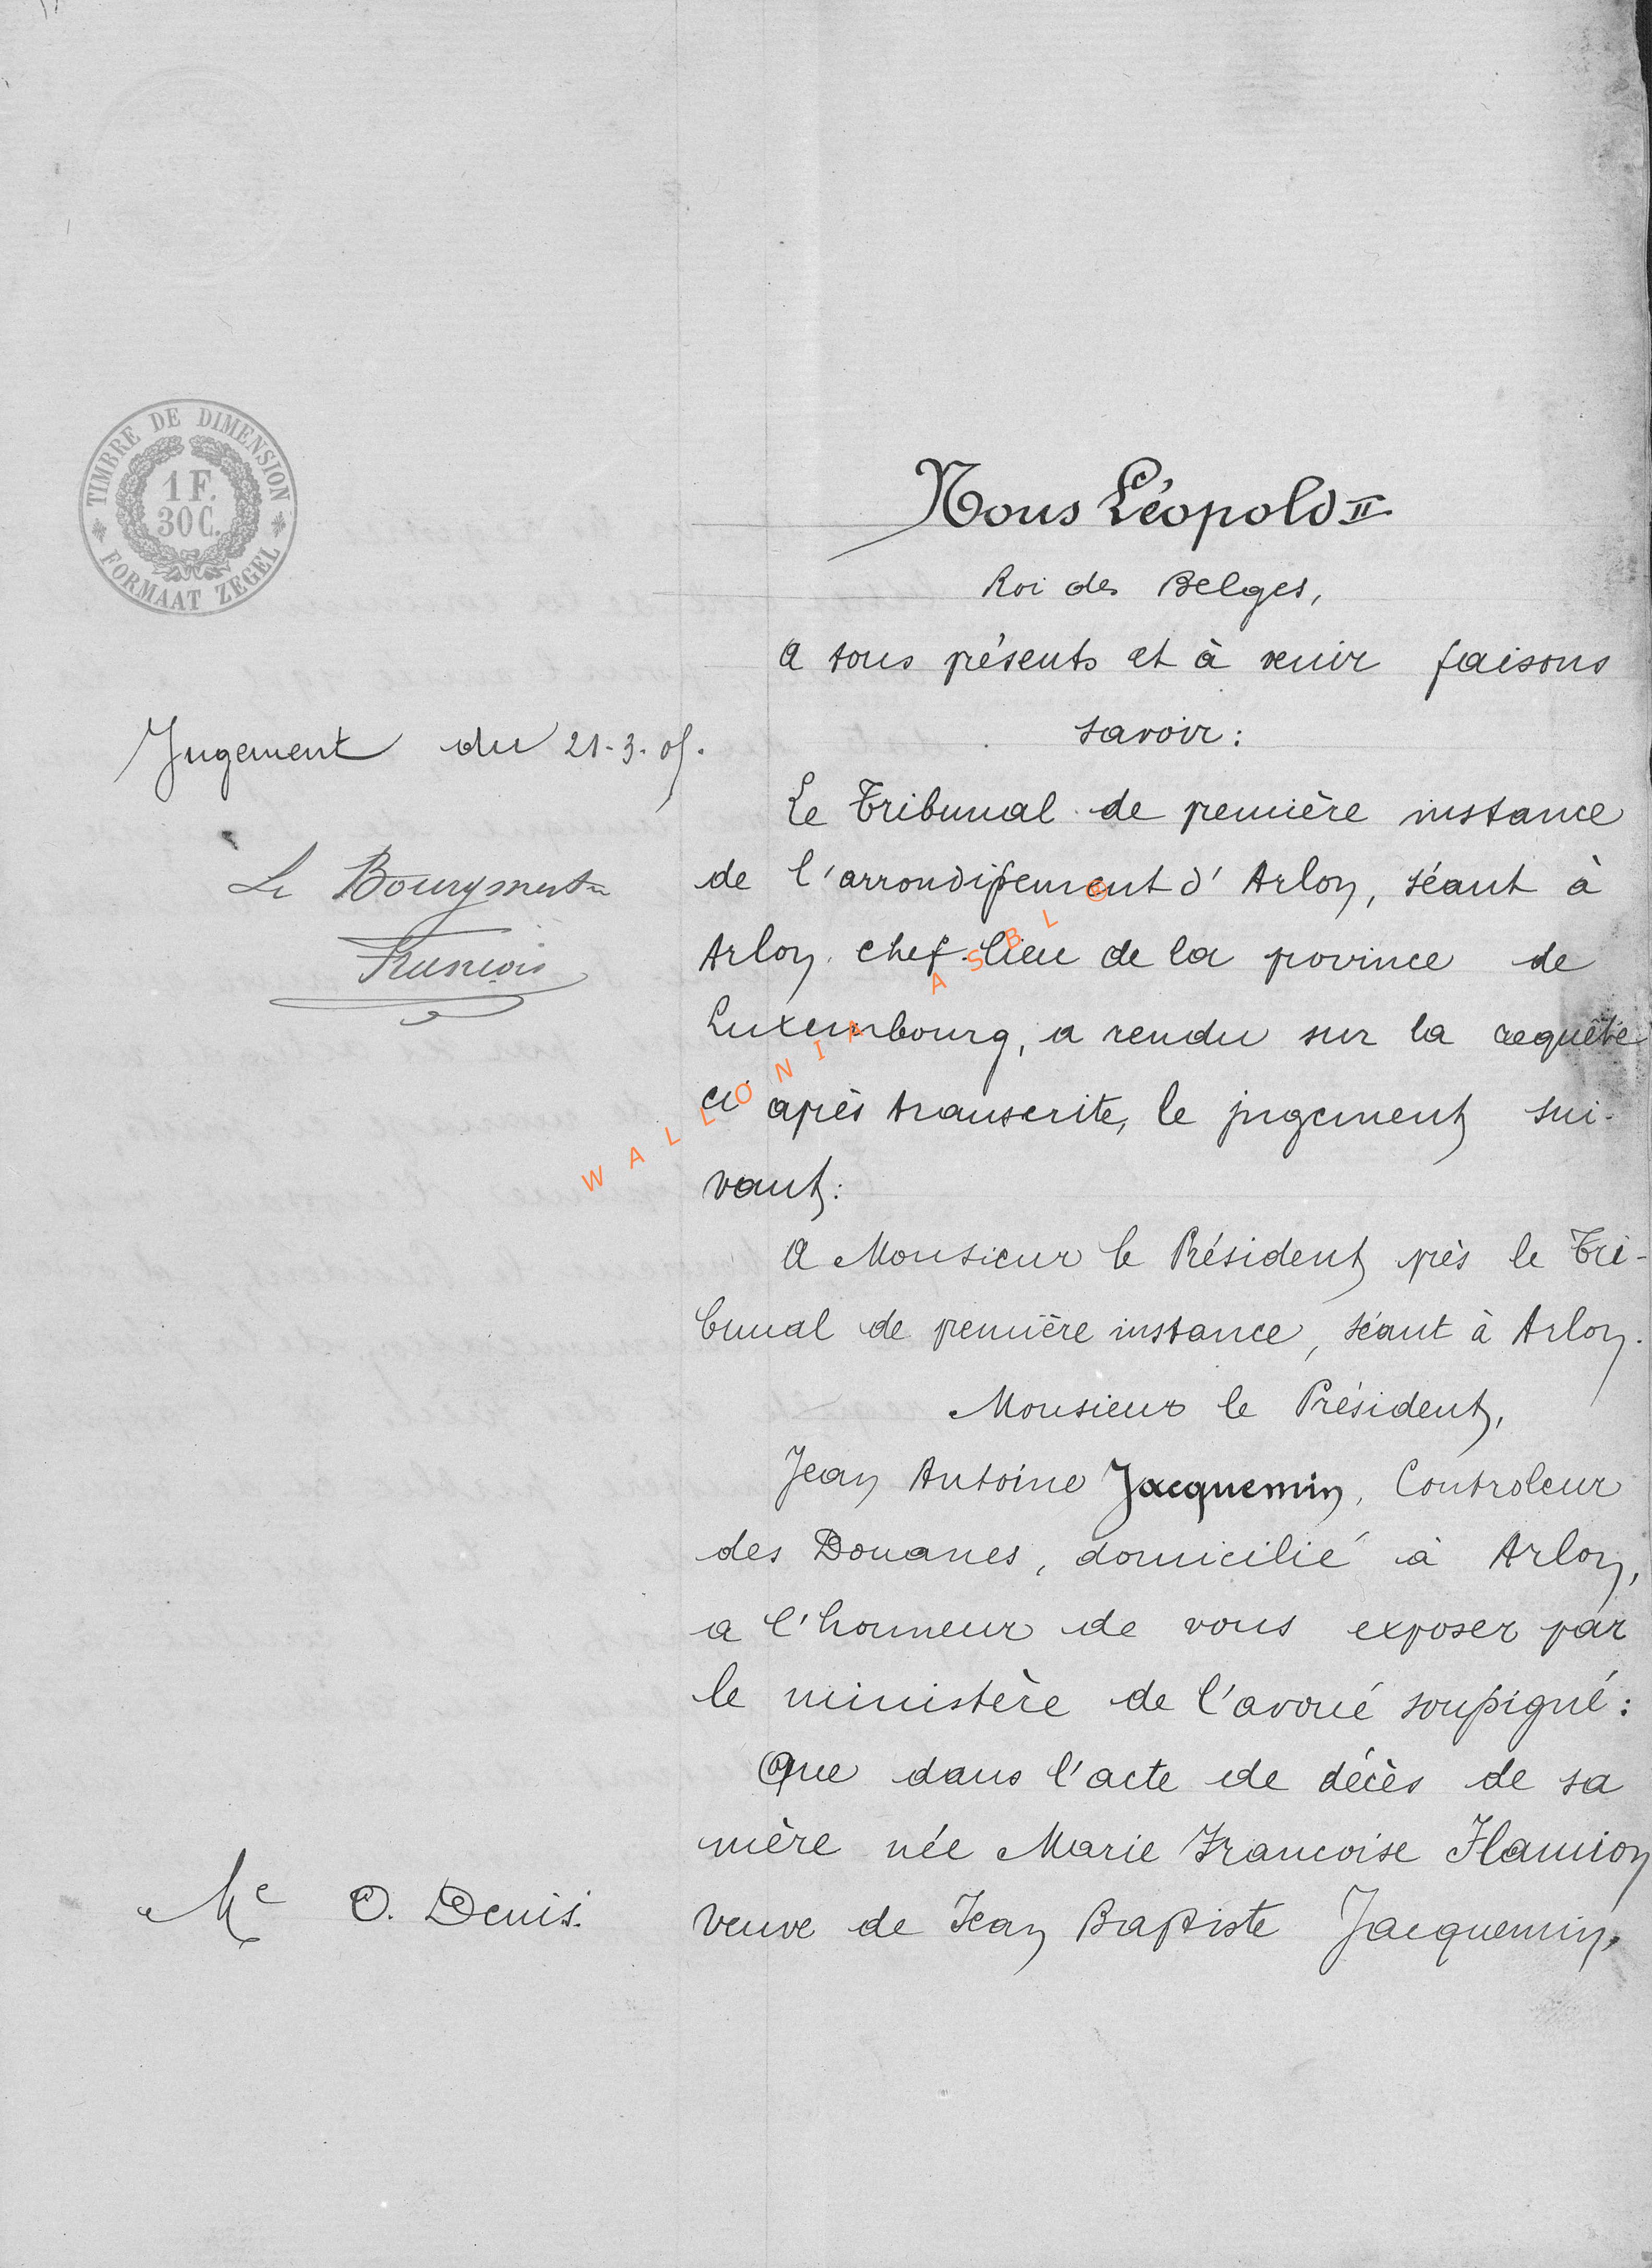 TIMBRE DE DIMENSION
1 F.
30 C.
FORMAAT ZEGEL
Jugement du 21-3-05.
Le Bourgmestre
François
Me O. Denis.
Nous Léopold II
Roi des Belges,
A tous présents et à venir faisons
savoir:
Le Tribunal de première instance
de l'arrondissement d'Arlon, séant à
Arlon, chef-lieu de la province de
Luxembourg, a rendu sur la requête
ci après transcrite, le jugement sui-
vant:
A Monsieur le Président près le Tri-
bunal de première instance, séant à Arlon.
Monsieur le Président,
Jean Antoine Jacquemin, Controleur
des Douanes, domicilié à Arlon,
a l'honneur de vous exposer par
le ministère de l'avoué soussigné:
Que dans l'acte de décès de sa
mère née Marie Francoise Flamion
veuve de Jean Baptiste Jacquemin,
WALLONIA ASBL ©